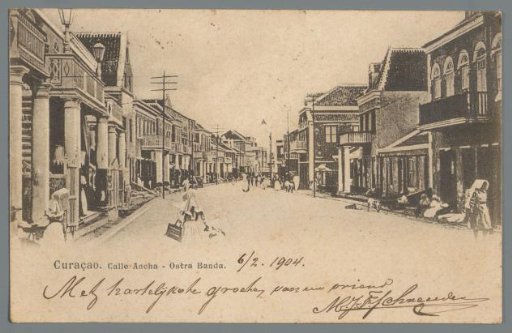 Curaçao. Calle Ancha - Ostra Banda. 6/2. 1904.
Met hartelijke groeten van uw vriend
Schneider